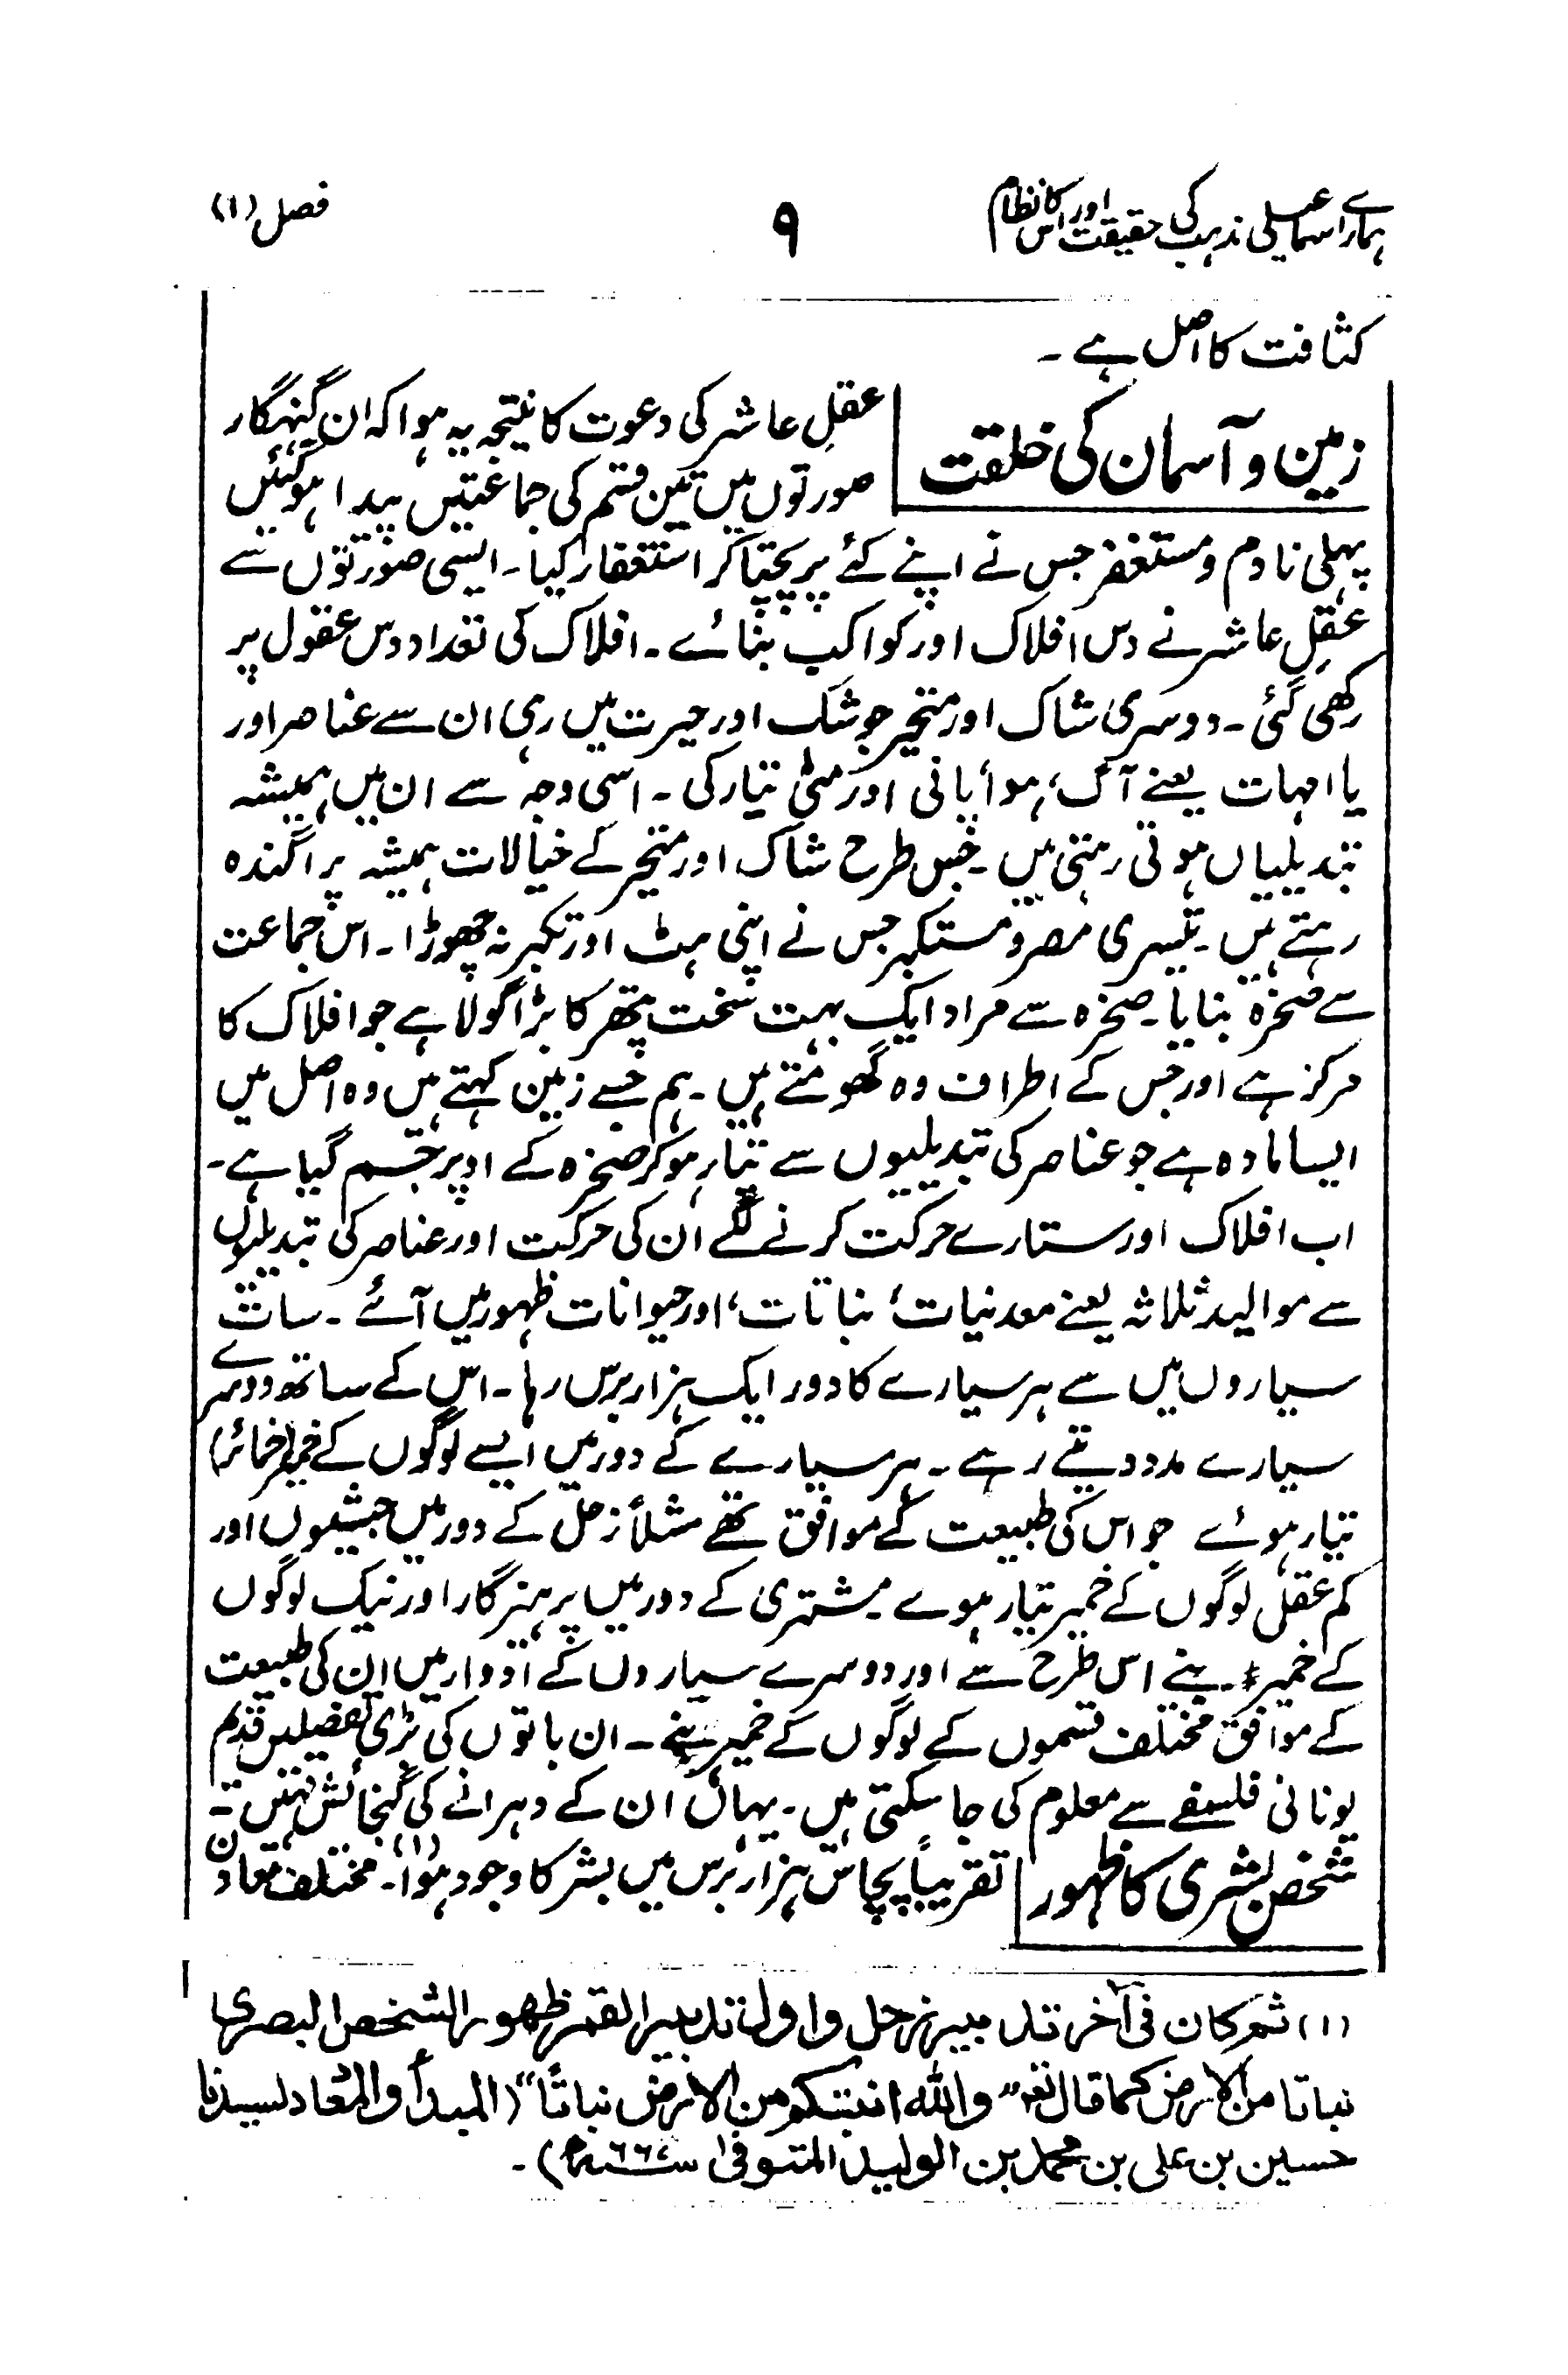 ہمارے اسماعیلی مذہب کی حقیقت اور اس کا نظام ۹ فصل (۱)
کثافت کا اصل ہے ۔
زمین و آسمان کی خلقت
عقلِ عاشر کی دعوت کا نیتجہ یہ ہوا کہ ان گنہگار
صورتوں میں تین قسم کی جماعتیں پیدا ہوگئیں
پہلی نادم و مستغفر جس نے اپنے کئے پر پچتا کر استغفار کیا ۔ ایسی صورتوں سے
عقلِ عاشر نے دس افلاک اور کواکب بنائے ۔ افلاک کی تعداد دس عقول پر
رکھی گئی ۔ دوسری شاک اور متحیر جو شک اور حیرت میں رہی ان سے عناصر اور
یا امہات یعنے آگ، ہوا، پانی اور مٹی تیار کی ۔ اسی وجہ سے ان میں ہمیشہ
تبدیلیاں ہوتی رہتی ہیں ۔ جس طرح شاک اور متحیر کے خیالات ہمیشہ پراگندہ
رہتے ہیں ۔ تیسری مصر و مستکبر جس نے اپنی ہٹ اور تکبر نہ چھوڑا ۔ اس جماعت
سے صخرہ بنایا ۔ صخرہ سے مراد ایک بہت سخت پتھر کا بڑا گولا ہے جو افلاک کا
مرکز ہے اور جس کے اطراف وہ گھومتے ہیں ۔ ہم جسے زمین کہتے ہیں وہ اصل میں
ایسا مادہ ہے جو عناصر کی تبدیلیوں سے تیار ہوکر صخرہ کے اوپر جسم گیا ہے ۔
اب افلاک اور ستارے حرکت کرنے لگے ان کی حرکت اور عناصر کی تبدیلیوں
سے موالید ثلاثہ یعنے معدنیات، نباتات، اور حیوانات ظہور میں آئے ۔ سات
سیاروں میں سے ہر سیارے کا دور ایک ہزار برس رہا ۔ اس کے ساتھ دوسرے
سیارے مدد دیتے رہے ۔ ہر سیارے کے دور میں ایسے لوگوں کے خمیر (خمائر)
تیار ہوئے جو اس کی طبیعت کے موافق تھے مثلاً زحل کے دور میں حبشیوں اور
کم عقل لوگوں کے خمیر تیار ہوے مشتری کے دور میں پرہیزگار اور نیک لوگوں
کے خمیر بنے اس طرح سے اور دوسرے سیاروں کے ادوار میں ان کی طبیعت
کے موافق مختلف قسموں کے لوگوں کے خمیر بنے ۔ ان باتوں کی بڑی تفصیلیں قدیم
یونانی فلسفے سے معلوم کی جا سکتی ہیں ۔ یہاں ان کے دہرانے کی گنجائش نہیں ۔
شخص بشری کا ظہور
تقریباً پچاس ہزار برس میں بشر کا وجود ہوا (۱) ۔ مختلف معادن
(۱) ثم کان فی آخر تدبیر زحل واول تدبیر القمر ظهور الشخص البصری
نباتا من الارض کما قال تعـ "والله انبتکم من الارض نباتاً" (المبدأ والمعاد لسیدنا
حسین بن علی بن محمد بن الولید المتوفی سنہ ۶۶۷ھ) ۔